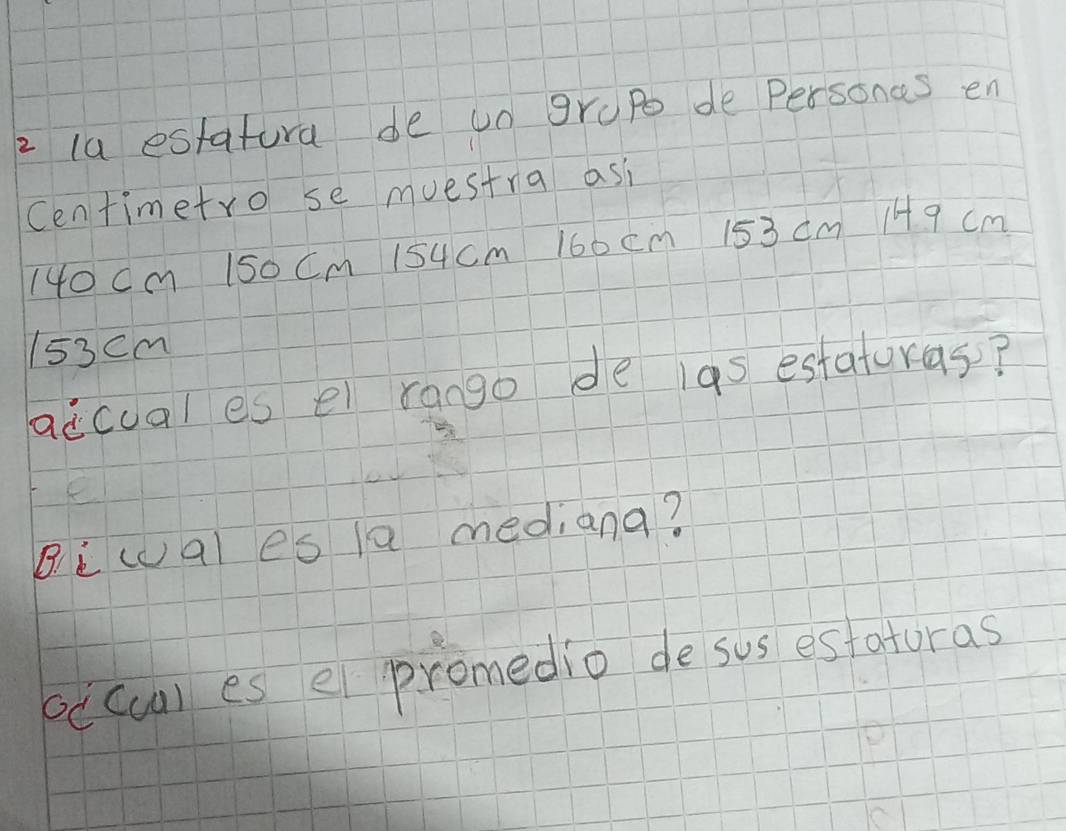 2 la estatura de un grupo de Personas en
Centimetro se muestra asi
140 cm 150 cm 154 cm 160 cm 153 cm 149 cm
153 cm
a ¿cual es el rango de las estaturas?
B. ¿cual es la mediana?
c ¿cual es el promedio de sus estaturas